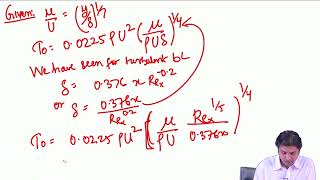 Given: μ/U = (y/δ)^1/7
τo = 0.0225 ρU² (μ/ρUδ)^1/4
We have seen for turbulent bL
δ = 0.376 x Rex^-0.2
or δ = 0.376x/Rex^0.2
τo = 0.0225 ρU² [μ/ρU Rex^1/5/0.376x]^1/4